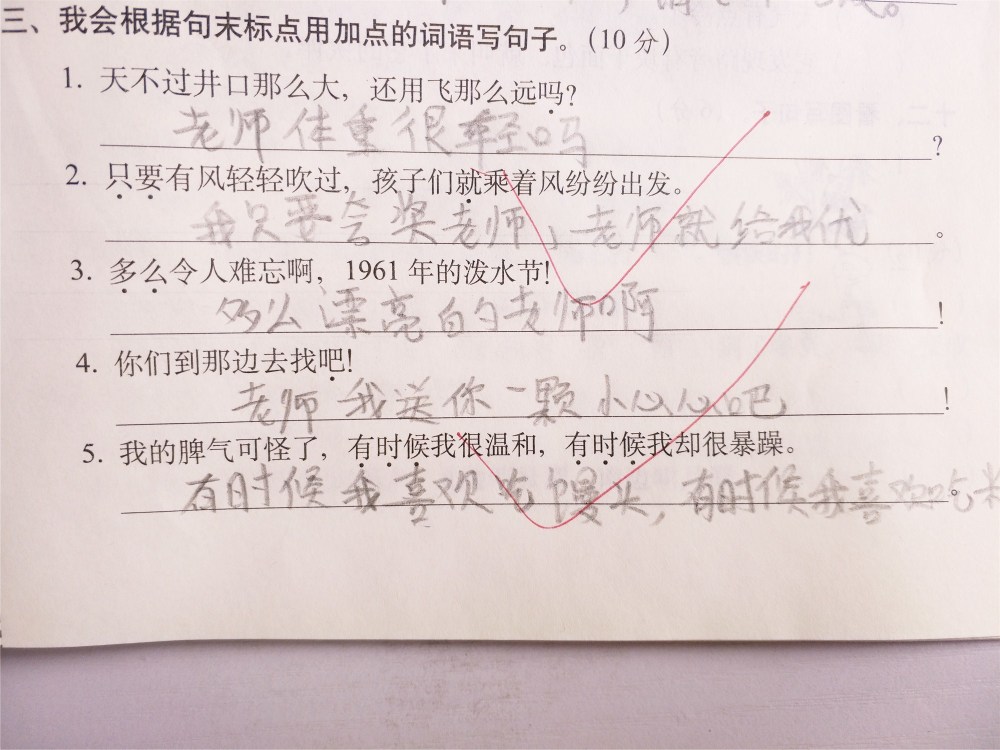 三、我会根据句末标点用加点的词语写句子。(10 分)
1. 天不过井口那么大，还用飞那么远吗?
老师体重很轻吗?
2. 只要有风轻轻吹过，孩子们就乘着风纷纷出发。
我只要夸奖老师，老师就给我优。
3. 多么令人难忘啊，1961 年的泼水节!
多么漂亮的老师啊!
4. 你们到那边去找吧!
老师我送你一颗小心心吧!
5. 我的脾气可怪了，有时候我很温和，有时候我却很暴躁。
有时候我喜欢吃馒头，有时候我喜欢吃。